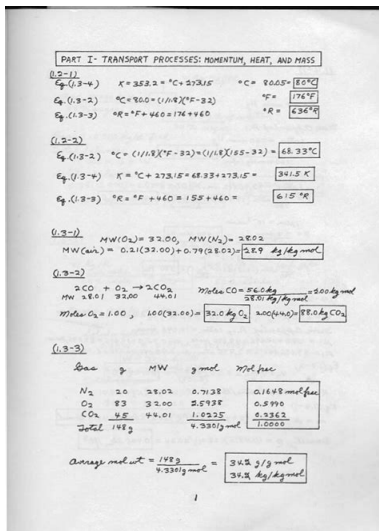 PART I- TRANSPORT PROCESSES: MOMENTUM, HEAT, AND MASS
(1.2-1)
Eq. (1.3-4) K = 353.2 = °C + 273.15 °C = 80.05 = 80°C
Eq. (1.3-2) °C = 80.0 = (1/1.8)(°F-32) °F = 176°F
Eq. (1.3-3) °R = °F + 460 = 176 + 460 °R = 636°R
(1.2-2)
Eq. (1.3-2) °C = (1/1.8)(°F-32) = (1/1.8)(155-32) = 68.33°C
Eq. (1.3-4) K = °C + 273.15 = 68.33 + 273.15 = 341.5 K
Eq. (1.3-3) °R = °F + 460 = 155 + 460 = 615 °R
(1.3-1)
MW(O2) = 32.00, MW(N2) = 28.02
MW(air) = 0.21(32.00) + 0.79(28.02) = 28.9 kg/kg mol
(1.3-2)
2CO + O2 → 2CO2 Moles CO = 56.0 kg / 28.01 kg/kg mol = 2.00 kg mol
MW 28.01 32.00 44.01
Moles O2 = 1.00, 1.00(32.00) = 32.0 kg O2 2.00(44.0) = 88.0 kg CO2
(1.3-3)
Gas g MW g mol Mol frac
N2 20 28.02 0.7138 0.1648 mol frac
O2 83 32.00 2.5938 0.5990
CO2 45 44.01 1.0225 0.2362
Total 148 g 4.3301 g mol 1.0000
Average mol wt = 148 g / 4.3301 g mol = 34.2 g/g mol
34.2 kg/kg mol
1